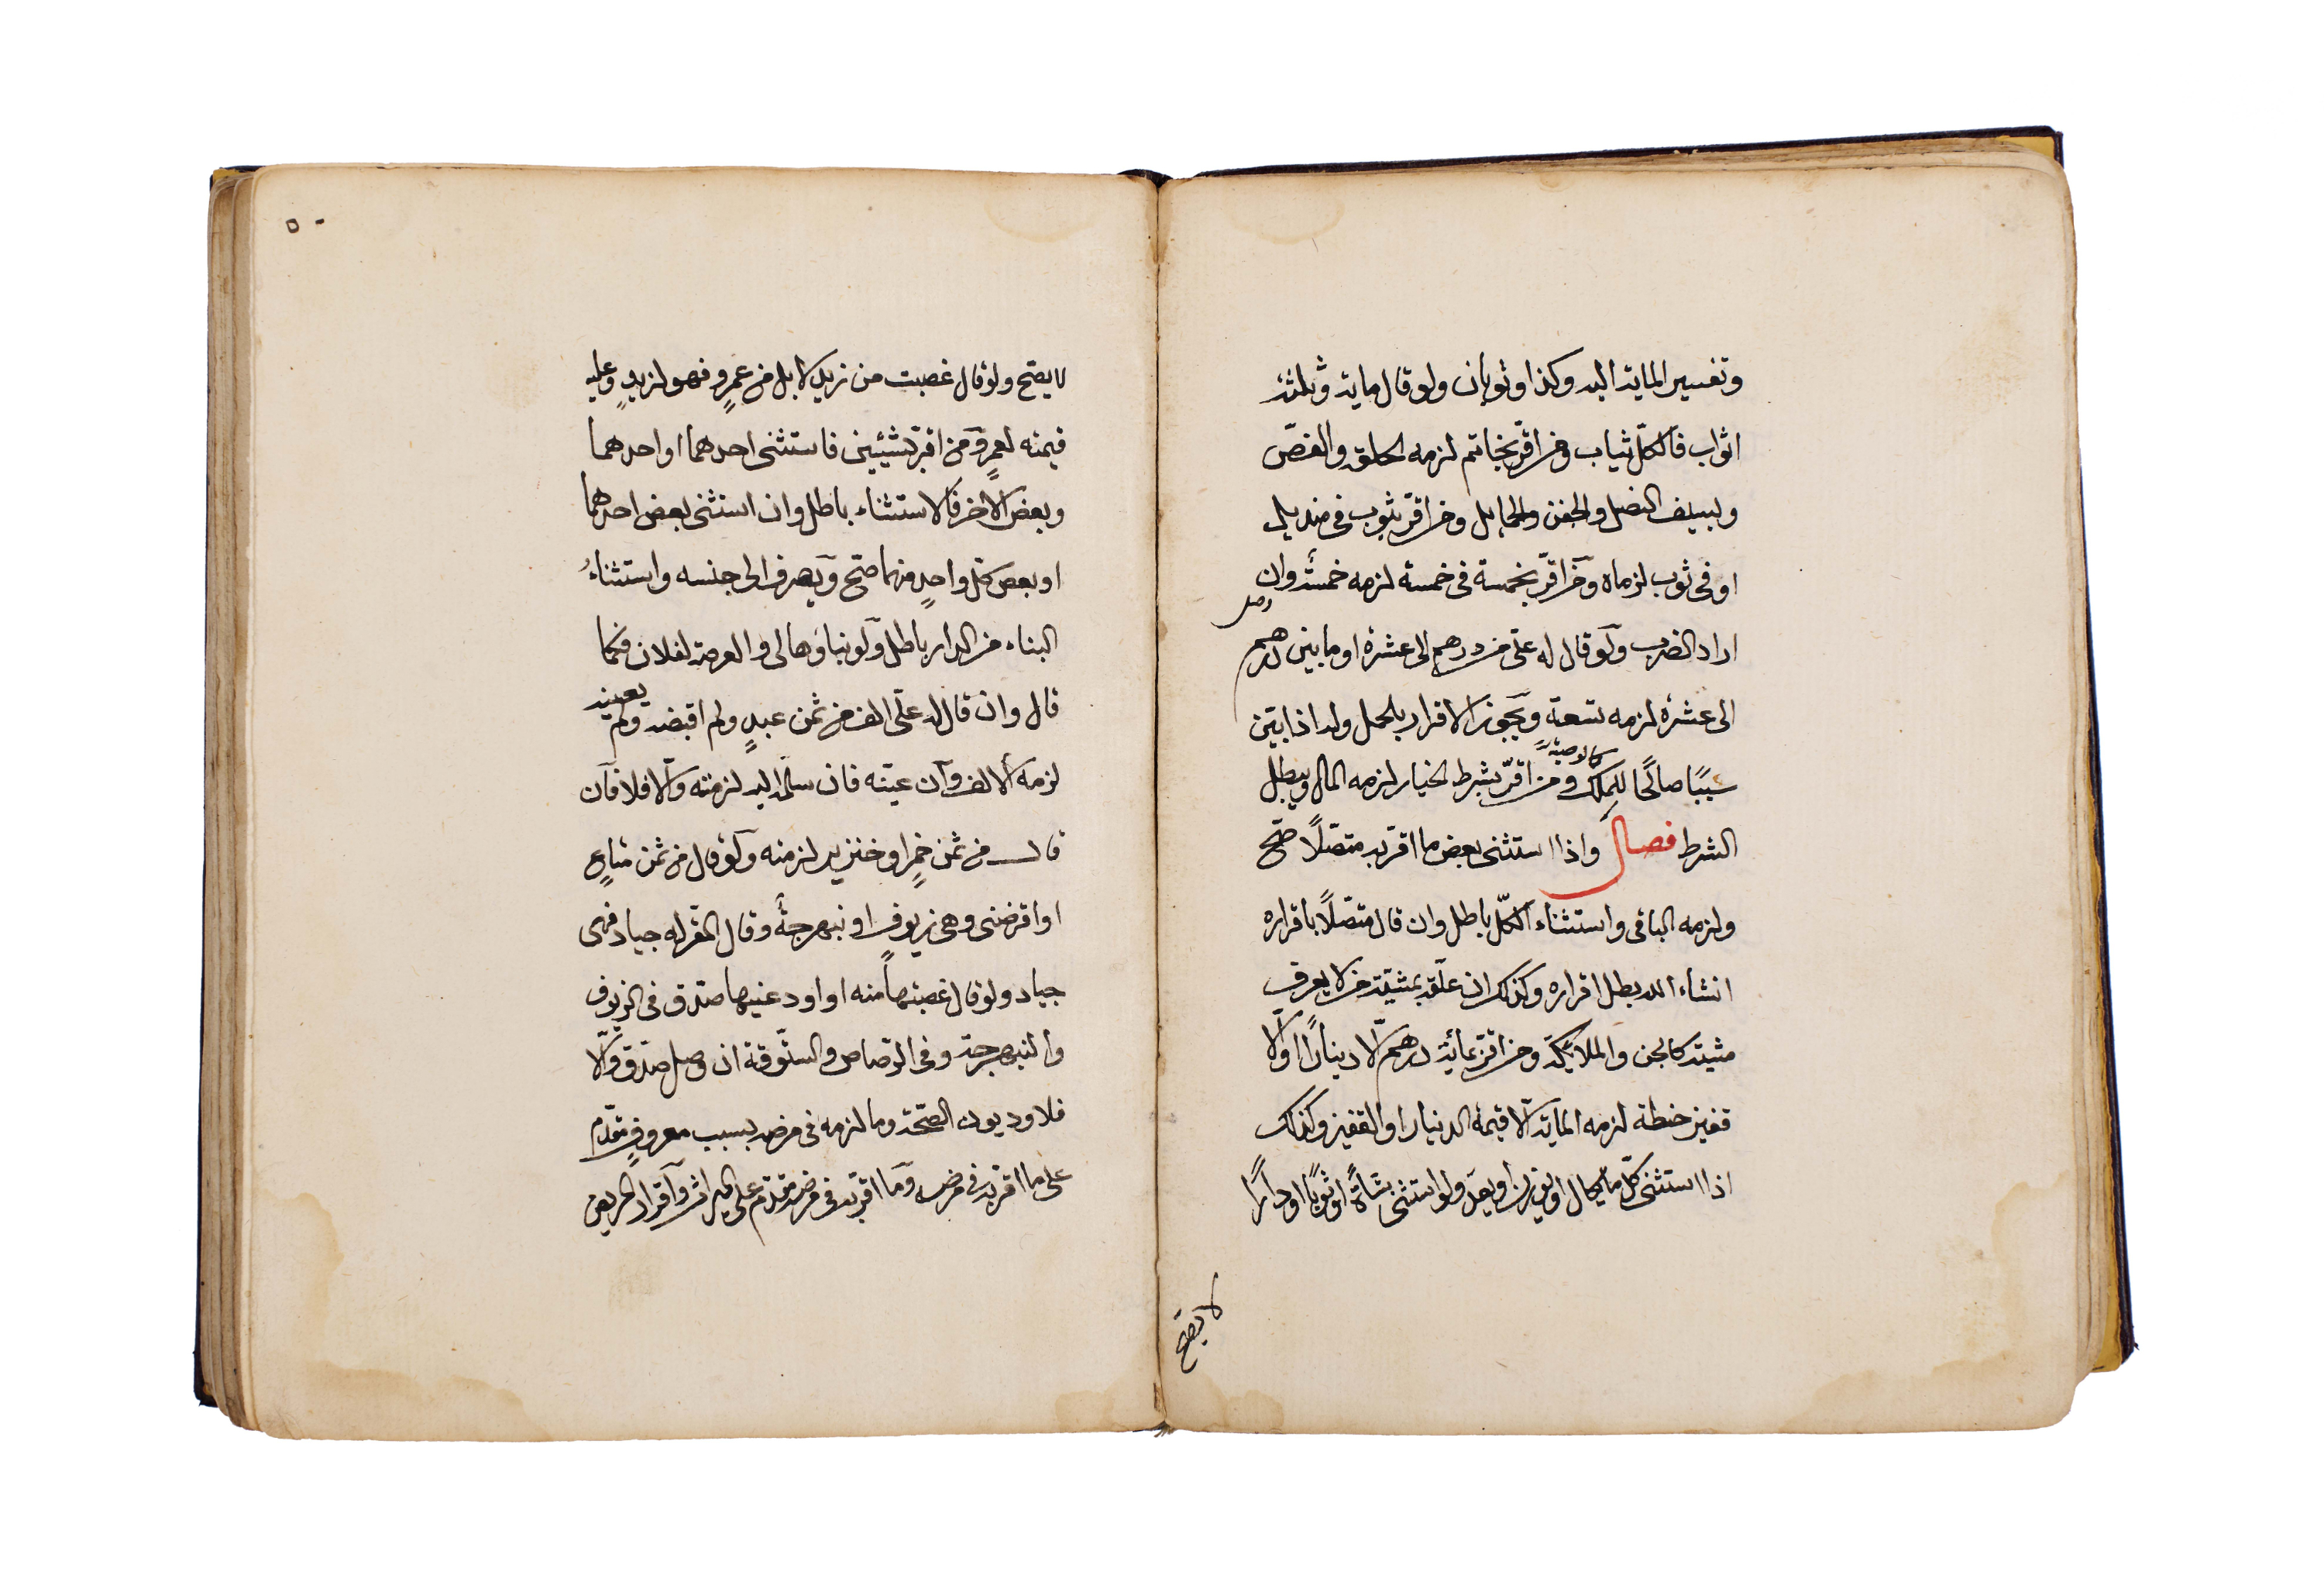 وتفسير الماية اليه وكذا وثوبان ولو قال ماية وثلثة
اثواب فالكل ثياب ومن اقرّ بخاتم لزمه الحلقة والفصّ
وبسيف النصل والجفن والحمايل ومن اقرّ بثوب في منديل
او في ثوب لزماه ومن اقرّ بخمسة في خمسة لزمه خمسة وان
اراد الضرب ولو قال له علىّ من درهم الى عشرة او ما بين درهم
الى عشرة لزمه تسعة ويجوز الاقرار بالحمل وله اذا بين
سببًا صالحًا للملك ومن اقرّ بشرط الخيار لزمه المال ويبطل
كالوصية
الشرط فصل واذا استثنى بعض ما اقرّ به متصلًا صحّ
ولزمه الباقى واستثناء الكلّ باطل وان قال متصلًا باقراره
انشاء الله بطل اقراره وكذلك ان علّقه بمشيّة من لا يعرف
مشيته كالجن والملائكة ومن اقرّ بمائة درهم الّا دينارًا او الّا
قفيز حنطة لزمه الماية الّا قيمة الدينار او القفيز وكذلك
اذا استثنى كلّ ما يكال او يوزن او يعدّ ولو استثنى شاةً او ثوبًا او دارًا
لا يصحّ
٥٠
لا يصح ولو قال غصبت من زيد لا بل من عمرٍو فهو لزيدٍ وعليه
قيمته لعمرٍو ومن اقرّ بشيئين فاستثنى احدهما او احدهما
وبعض الاخر فالاستثناء باطل وان استثنى بعض احدهما
او بعض كل واحدٍ منهما صحّ ويصرف الى جنسه واستثناءُ
البناء من الدار باطل ولو قال بناؤها لى والعرصة لفلان فكما
قال وان قال له علىّ الف من ثمن عبدٍ ولم اقبضه ولم يعينه
لزمه الالف وان عيّنه فان سلّمه اليه لزمته والّا فلا فان
قال من ثمن خمرٍ او خنزير لزمته ولو قال من ثمن متاعٍ
او اقرضنى وهى زيوف او نبهرجة وقال المقرّ له جياد فهى
جياد ولو قال غصبتها منه او اودعنيها صدّق فى الزيوف
والنبهرجة وفى الرّصاص والستّوقة ان وصل صدّق والّا
فلا وديون الصحّة وما لزمه فى مرضه بسبب معروفٍ مقدّم
على ما اقرّ به فى مرضه وما اقرّ به فى مرضه مقدّم على الميراث واقرار المريض